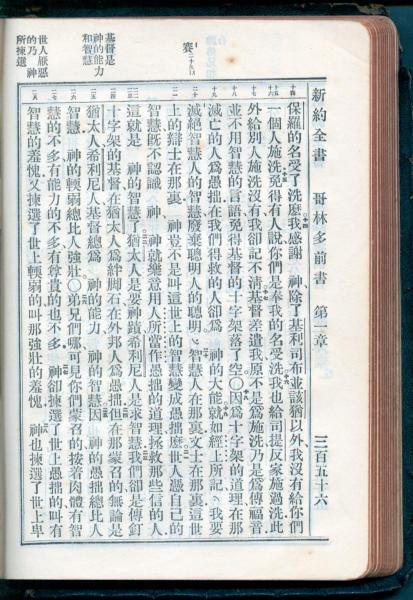 新約全書　哥林多前書　第一章　三百五十六
保羅的名受了洗麽我感謝　神除了基利司布並該猶以外我沒有給你們
一個人施洗免得有人說你們是奉我的名受洗我也給司提反家施過洗此
外給別人施洗沒有我卻記不清基督差遣我原不是爲施洗乃是爲傳福音
並不用智慧的言語免得基督的十字架落了空○因爲十字架的道理在那
滅亡的人爲愚拙在我們得救的人卻爲　神的大能就如經上所記我要
滅絕智慧人的智慧廢棄聰明人的聰明智慧人在那裏文士在那裏這世
上的辯士在那裏　神豈不是叫這世上的智慧變成愚拙麽世人憑自己的
智慧既不認識　神　神就樂意用人所當作愚拙的道理拯救那些信的人
這就是　神的智慧了猶太人是要神蹟希利尼人是求智慧我們卻是傳釘
十字架的基督在猶太人爲絆脚石在外邦人爲愚拙但在那蒙召的無論是
猶太人希利尼人基督總爲　神的能力　神的智慧因　神的愚拙總比人
智慧　神的輭弱總比人強壯○弟兄們哪可見你們蒙召的按着肉體有智
慧的不多有能力的不多有尊貴的也不多　神卻揀選了世上愚拙的叫有
智慧的羞愧又揀選了世上輭弱的叫那強壯的羞愧　神也揀選了世上卑
賽
基督是
神的能力
和智慧
世人厭惡
的乃　神
所揀選